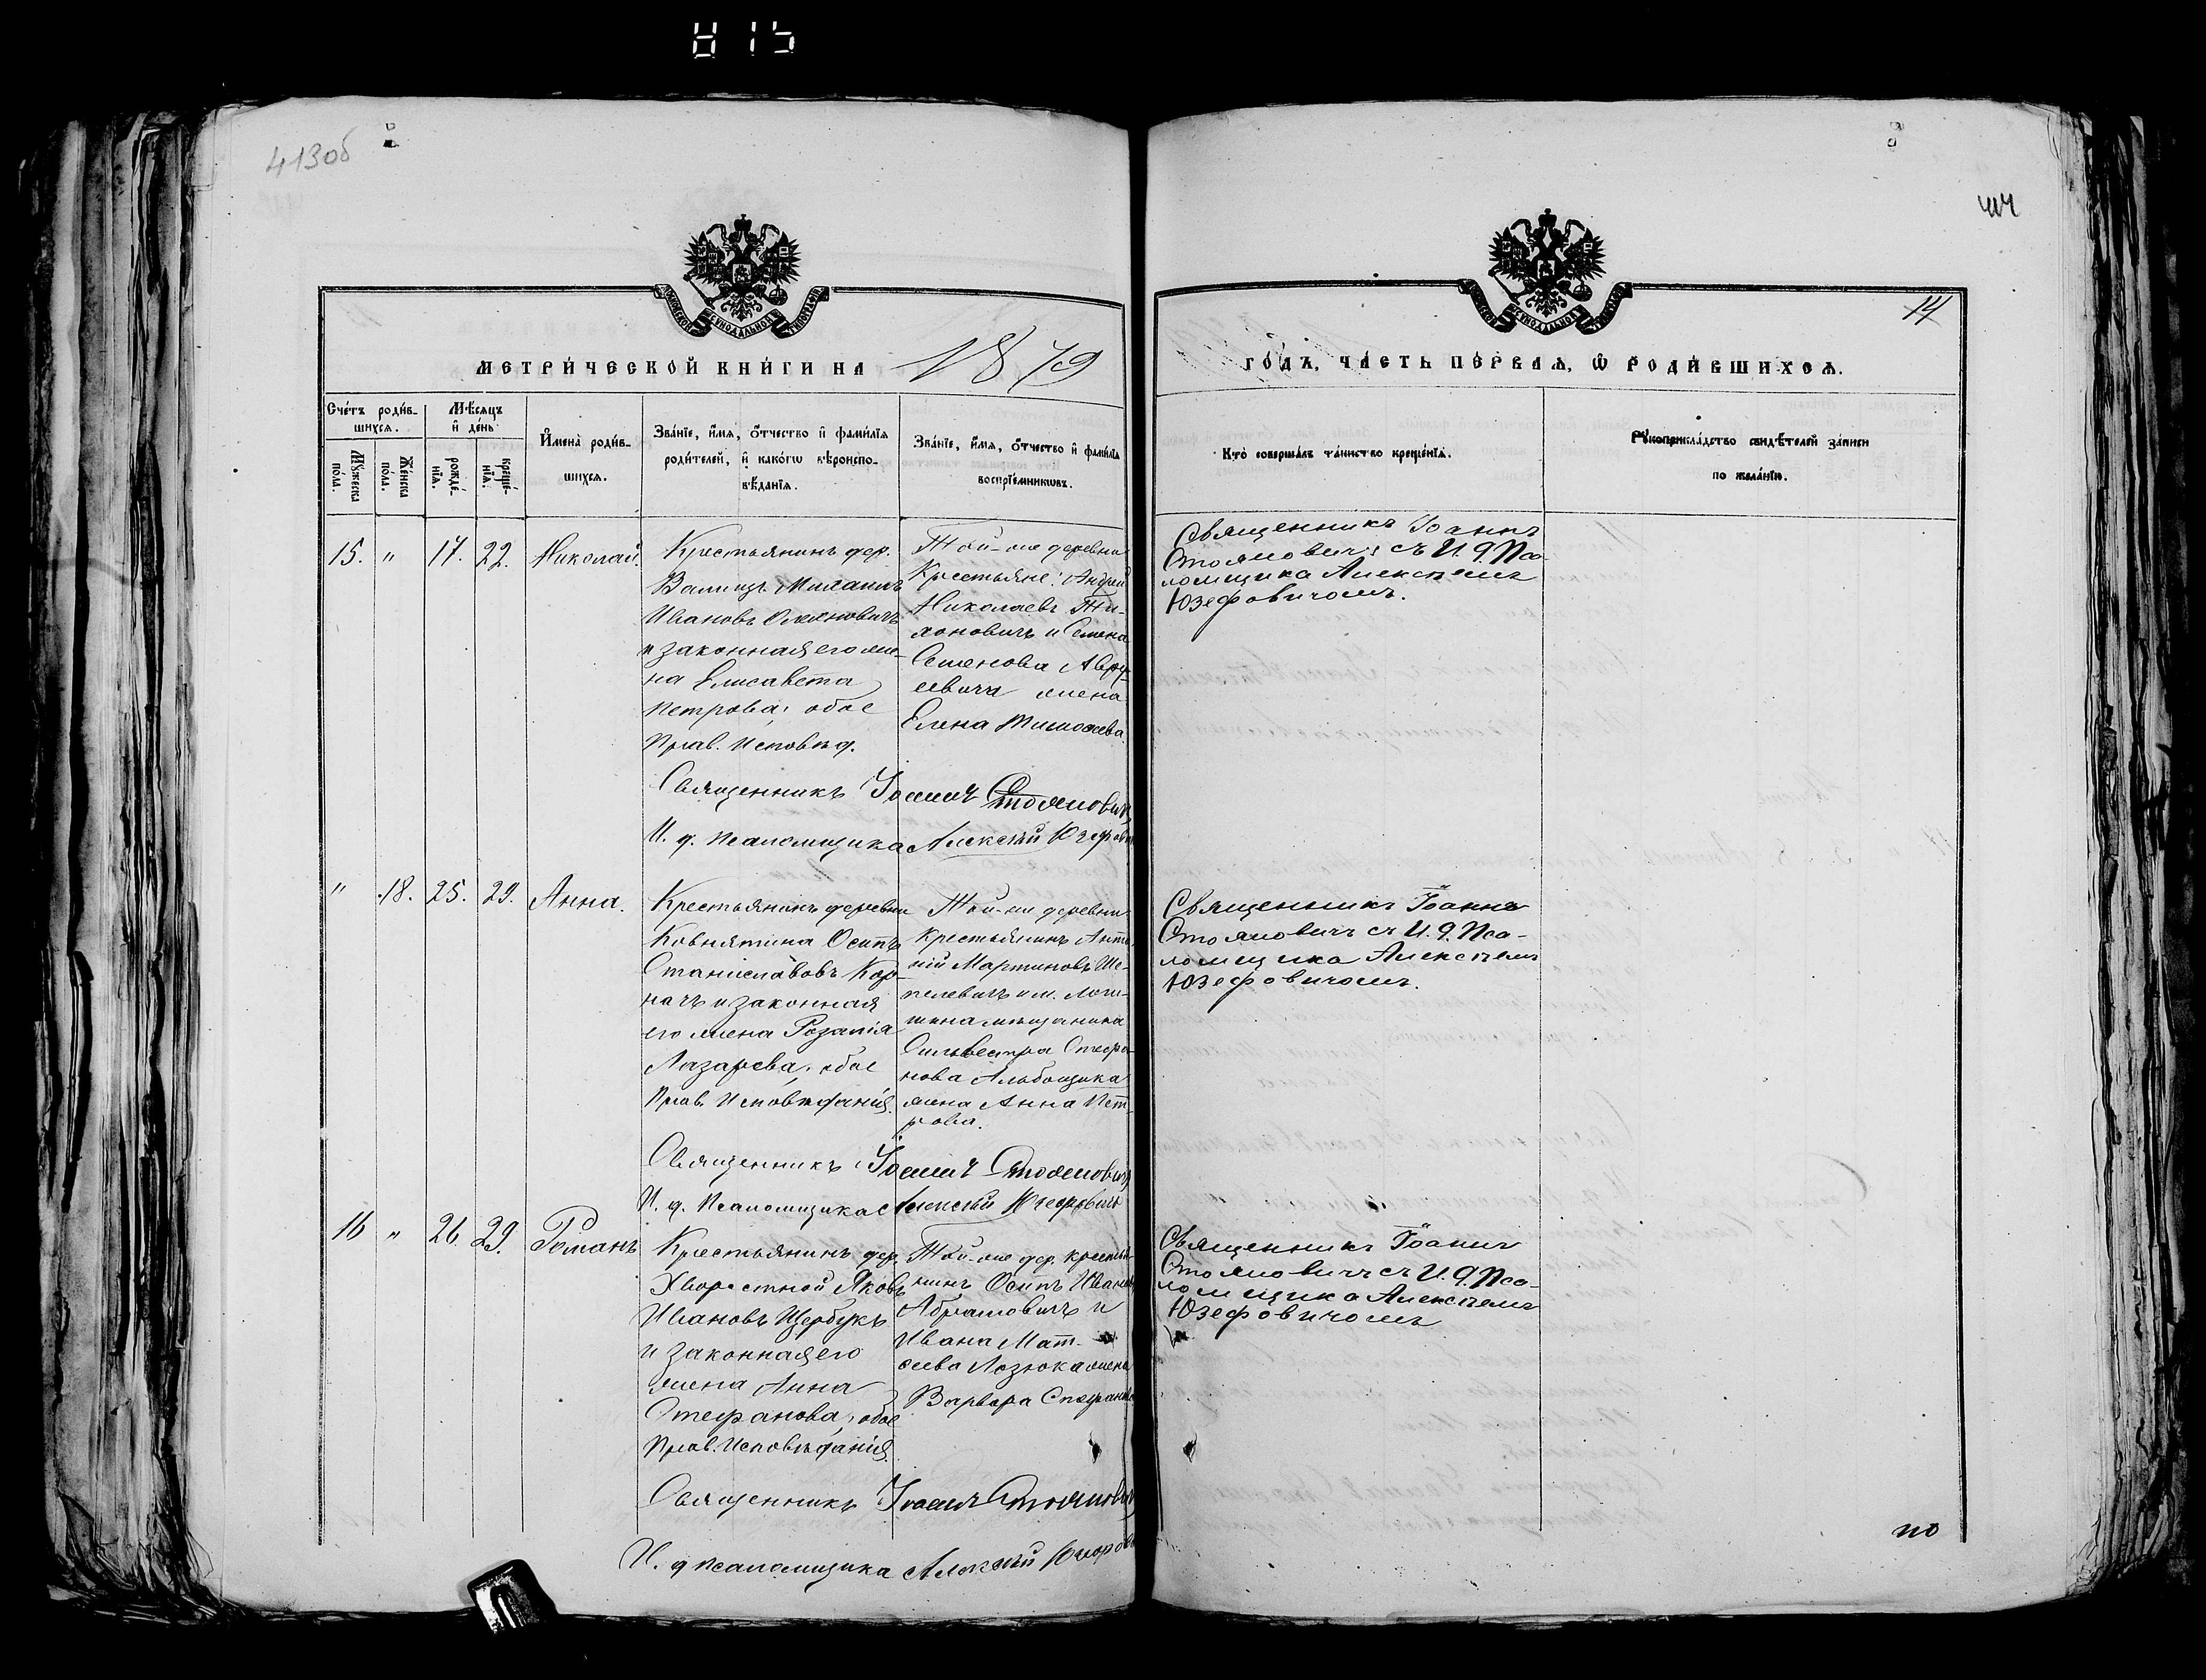 815
413об
414
14
МЕТРИ́ЧЕСКОЙ КНИ́ГИ НА 1879
ГО́ДЪ, ЧА́СТЬ ПЕ́РВАѦ, Ѿ РОДИ́ВШИХСѦ.
Сче́тъ роди́в-
шихсѧ.
Мꙋ́жеска по́ла.
Же́нска по́ла.
Мѣ́сѧцъ
и҆ де́нь
рожде́-
нїѧ.
креще́-
нїѧ.
И҆мена̀ роди́в-
шихсѧ.
Зва́нїе, и҆́мѧ, ѻ҆́тчество и҆ фами́лїѧ
роди́телей, и҆ како́гѡ вѣроиспо-
вѣ́данїѧ.
Зва́нїе, и҆́мѧ, ѻ҆́тчество и҆ фами́лїѧ
воспрїе́мникѡвъ.
Кто̀ соверша́лъ та́инство креще́нїѧ.
Рꙋкоприкла́дство свидѣ́телей за́писи
по жела́нїю.
15. " 17. 22. Николай.
Крестьянинъ дер.
Валищъ Михаилъ
Ивановъ
и законная его же-
на Елисавета
Петрова, обое
Прав. Исповѣд.
Той-же деревни
Крестьяне: Андрей
Николаевъ Ти-
хоновичъ и Семена
Семенова
жена
Елена Тимоѳеева.
Священникъ Іоаннъ
Стояновичъ съ И. д. Пса-
ломщика Алексѣемъ
Юзефовичомъ.
Священникъ Іоаннъ Стояновичъ
И. д. Псаломщика Алексѣй Юзефович
" 18. 25. 29. Анна.
Крестьянинъ деревни
Ковнятина Осипъ
Станиславовъ Кор-
начъ и законная
его жена Розалія
Лазарева, обое
Прав. Исповѣданія.
Той-же деревни
Крестьянинъ Анто-
ній Мартиновъ Ше-
пелевичъ и м. Логи-
шина мѣщанина
Сильвестра Стефа-
нова
жена Анна Пет-
рова.
Священникъ Іоаннъ
Стояновичъ съ И. д. Пса-
ломщика Алексѣемъ
Юзефовичомъ.
Священникъ Іоаннъ Стояновичъ
И. д. Псаломщика Алексѣй Юзефовичъ
16 " 26. 29. Романъ
Крестьянинъ дер.
Хворостной Яковъ
Ивановъ Щербукъ
и законная его
жена Анна
Стефанова, обое
Прав. Исповѣданія.
Той-же дер. крестья-
нинъ Осипъ Иванов
Абрамовичъ и
Ивана Мат-
ѳеева Лозюка жена
Варвара Стефанова
Священникъ Іоаннъ
Стояновичъ съ И. д. Пса-
ломщика Алексѣемъ
Юзефовичомъ
Священникъ Іоаннъ Стоянович
И. д Псаломщика Алексѣй Юзефов
по